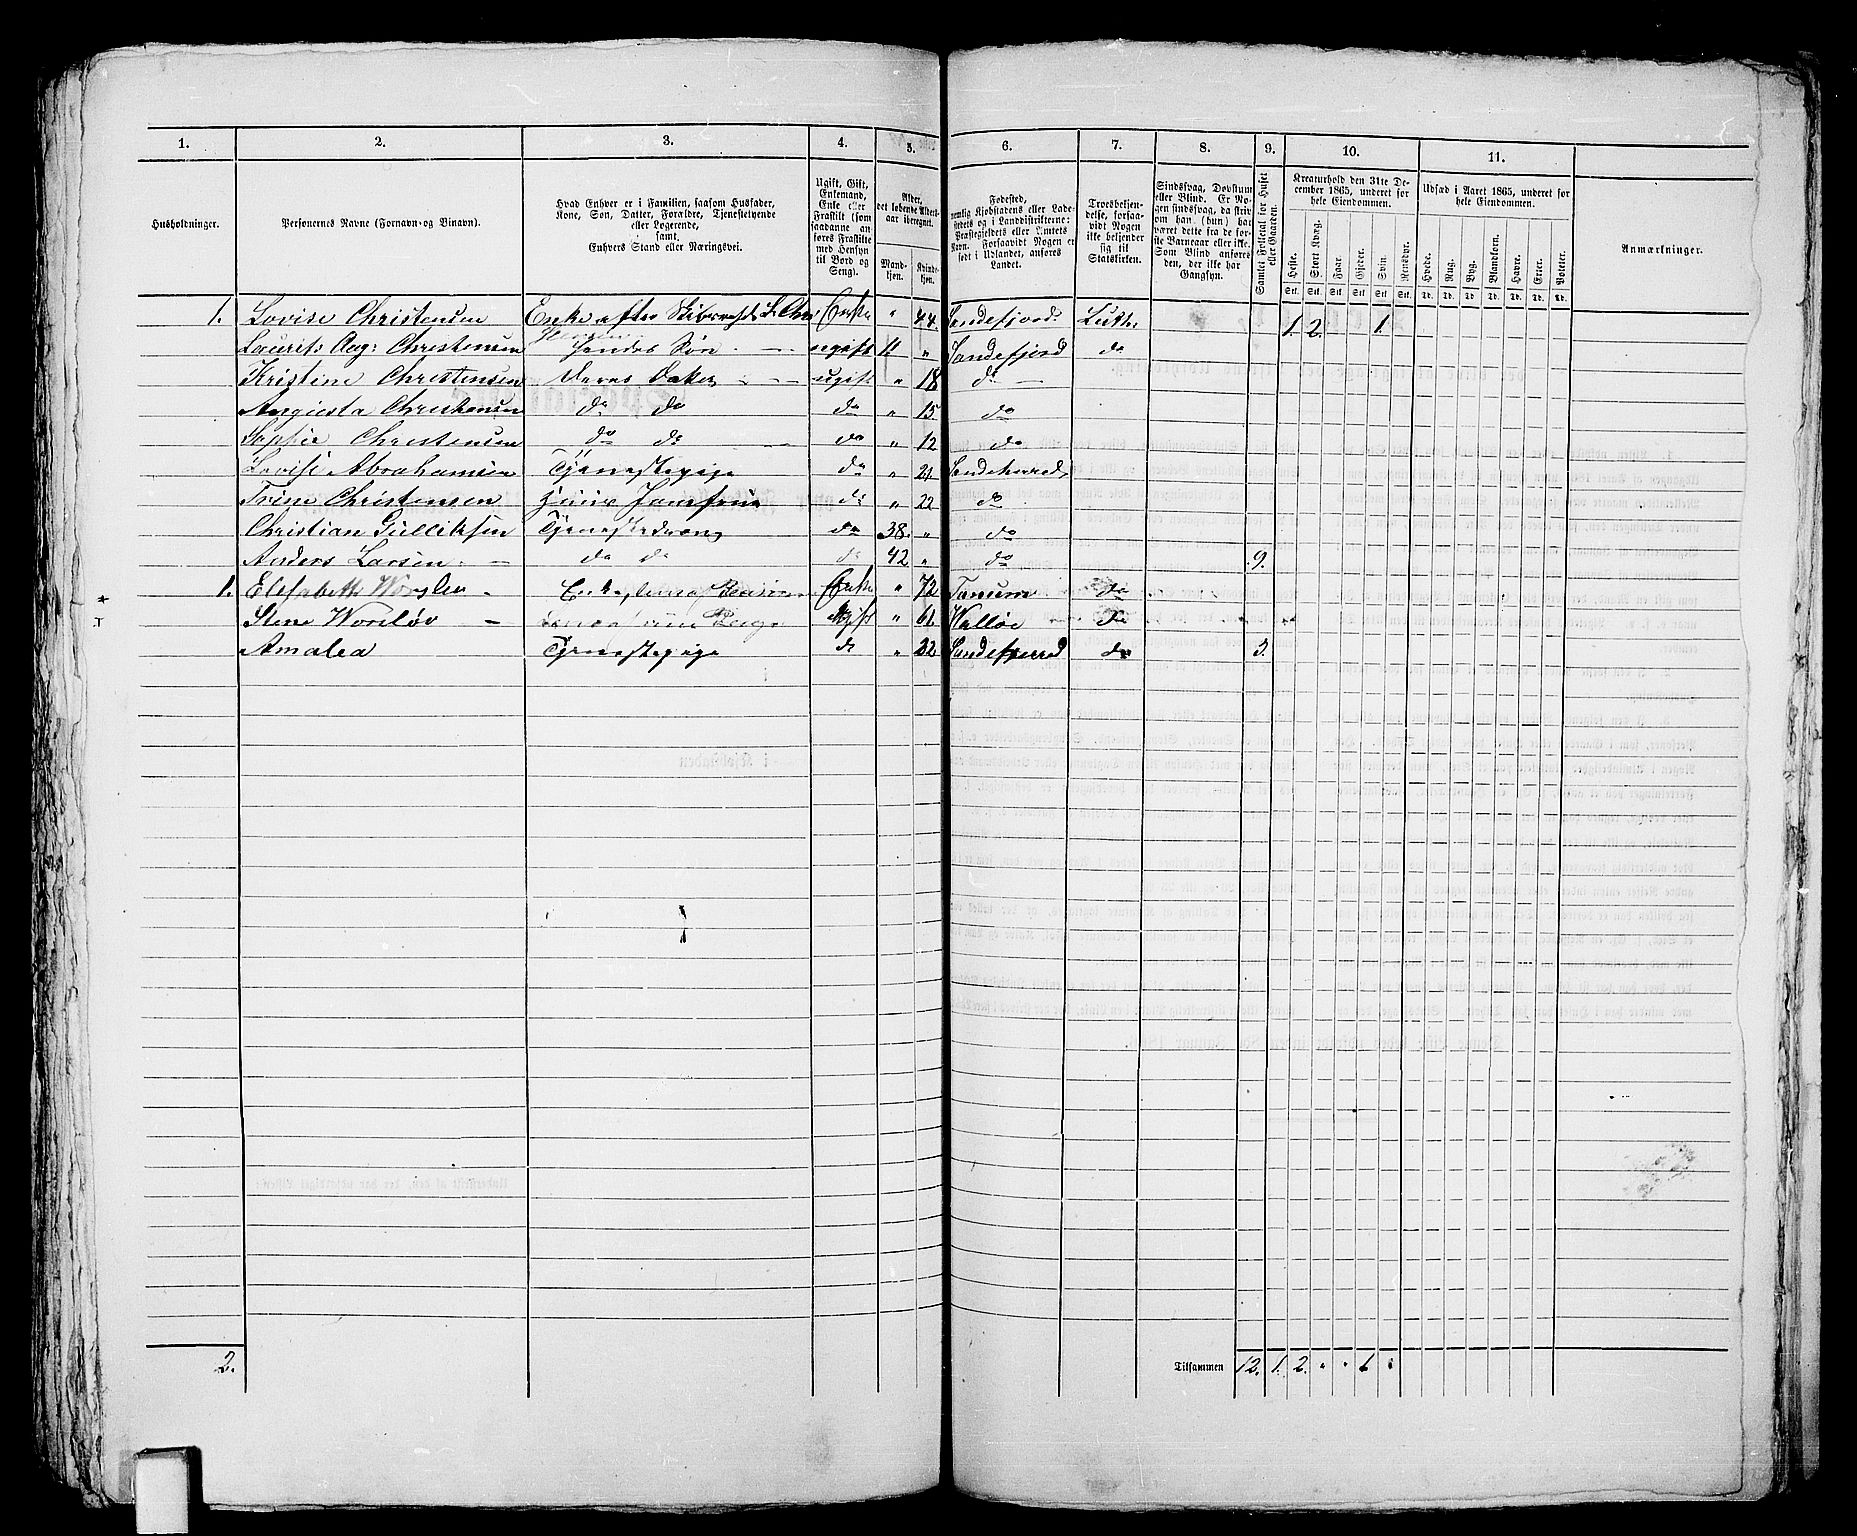 1. 2. 3. 4. 5. 6. 7. 8. 9. 10. 11.
Husholdninger.
Personernes Navne (Fornavn og Binavn).
Hvad Enhver er i Familien, saasom Husfader,
Kone, Søn, Datter, Forældre, Tjenestetyende
eller Logerende,
samt
Enhvers Stand eller Næringsvei.
Ugift, Gift,
Enkemand,
Enke eller
Fraskilt (som
saadanne an-
føres Fraskilte
med Hensyn
til Bord og
Seng).
Alder,
det løbende Alders-
aar iberegnet.
Mand-
kjøn.
Kvinde-
kjøn.
Fødested,
nemlig Kjøbstadens eller Lade-
stedets og i Landdistrikterne:
Præstegjeldets eller Amtets
Navn. Forsaavidt Nogen er
født i Udlandet, anføres
Landet.
Troesbekjen-
delse, forsaa-
vidt Nogen
ikke bekjender
sig til
Statskirken.
Sindssvag, Døvstum
eller Blind. Er No-
gen sindssvag, da skri-
ves om han (hun) har
været dette fra de før-
ste Barneaar eller ikke.
Som Blind anføres
den, der ikke har
Gangsyn.
Samlet Folketal for Huset
eller Gaarden.
Kreaturhold den 31te De-
cember 1865, underet for
hele Eiendommen.
Heste. Stort Kvæg. Faar. Gjeder. Svin. Rensdyr.
Stk. Stk. Stk. Stk. Stk. Stk.
Udsæd i Aaret 1865, underet for
hele Eiendommen.
Hvede. Rug. Byg. Blandkorn. Havre. Erter. Poteter.
Td. Td. Td. Td. Td. Td. Td.
Anmærkninger.
1. Lovise Christensen Enke efter L. Enke " 44. Sandefjord. Luth. 1. 2. 1.
Laurits Aug: Christensen Hendes Søn ugift 11. " Sandefjord do
Kristine Christensen Deres Datter ugift " 18 do
Augusta Christensen do do do " 15. do
Sophie Christensen do do do " 12 do
Lovise Abrahamsen Tjenestepige do " 21. Sandeherred
Trine Christensen Huus Jomfrue do " 22 do
Christian Gulliksen Tjenestedreng do 38. " do
Anders Larsen do do do 42 " do 9.
1. Elisabeth Enke " 72 Tanum do
Stine Worsløv ugift " 61. Walløe do
Amalea Tjenestepige do " 22 Sandeherred do 3.
2. Tilsammen 12. 1. 2. " " 1 "